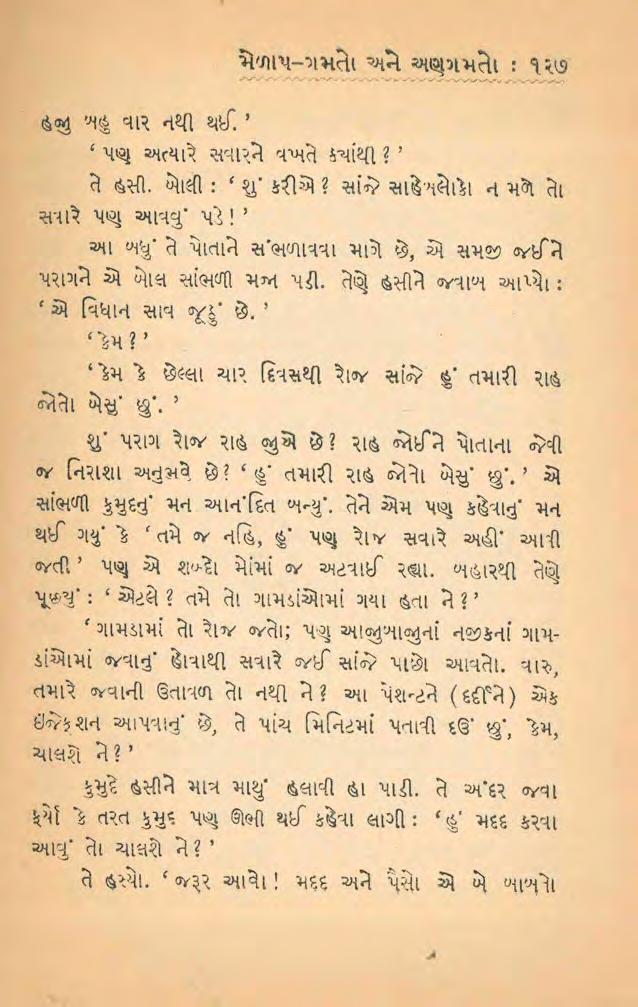 મેળાપ–ગમતો અને અણગમતો : ૧૨૭
હજી બહુ વાર નથી થઈ.’
‘ પણ અત્યારે સવારને વખતે ક્યાંથી ? ’
તે હસી. બોલી : ‘ શું કરીએ ? સાંજે સાહેબલોકો ન મળે તો
સવારે પણ આવવું પડે ! ’
આ બધું તે પોતાને સંભળાવવા માગે છે, એ સમજી જઈને
પરાગને એ બોલ સાંભળી મઝા પડી. તેણે હસીને જવાબ આપ્યો :
‘ એ વિધાન સાવ જૂઠું છે. ’
‘ કેમ ? ’
‘ કેમ કે છેલ્લા ચાર દિવસથી રોજ સાંજે હું તમારી રાહ
જોતો બેસું છું. ’
શું પરાગ રોજ રાહ જુએ છે ? રાહ જોઈને પોતાના જેવી
જ નિરાશા અનુભવે છે ? ‘ હું તમારી રાહ જોતો બેસું છું. ’ એ
સાંભળી કુમુદનું મન આનંદિત બન્યું. તેને એમ પણ કહેવાનું મન
થઈ ગયું કે ‘ તમે જ નહિ, હું પણ રોજ સવારે અહીં આવી
જતી.’ પણ એ શબ્દો મોંમાં જ અટવાઈ રહ્યા. બહારથી તેણે
પૂછ્યું : ‘ એટલે ? તમે તો ગામડાંઓમાં ગયા હતા ને ? ’
‘ ગામડામાં તો રોજ જતો; પણ આજુબાજુનાં નજીકનાં ગામ-
ડાંઓમાં જવાનું હોવાથી સવારે જઈ સાંજે પાછો આવતો. વારુ,
તમારે જવાની ઉતાવળ તો નથી ને ? આ પેશન્ટને (દર્દીને) એક
ઇંજેક્શન આપવાનું છે, તે પાંચ મિનિટમાં પતાવી દઉં છું, કેમ,
ચાલશે ને ? ’
કુમુદે હસીને માત્ર માથું હલાવી હા પાડી. તે અંદર જવા
ફર્યો કે તરત કુમુદ પણ ઊભી થઈ કહેવા લાગી : ‘ હું મદદ કરવા
આવું તો ચાલશે ને ? ’
તે હસ્યો. ‘ જરૂર આવો ! મદદ અને પૈસો એ બે બાબતો